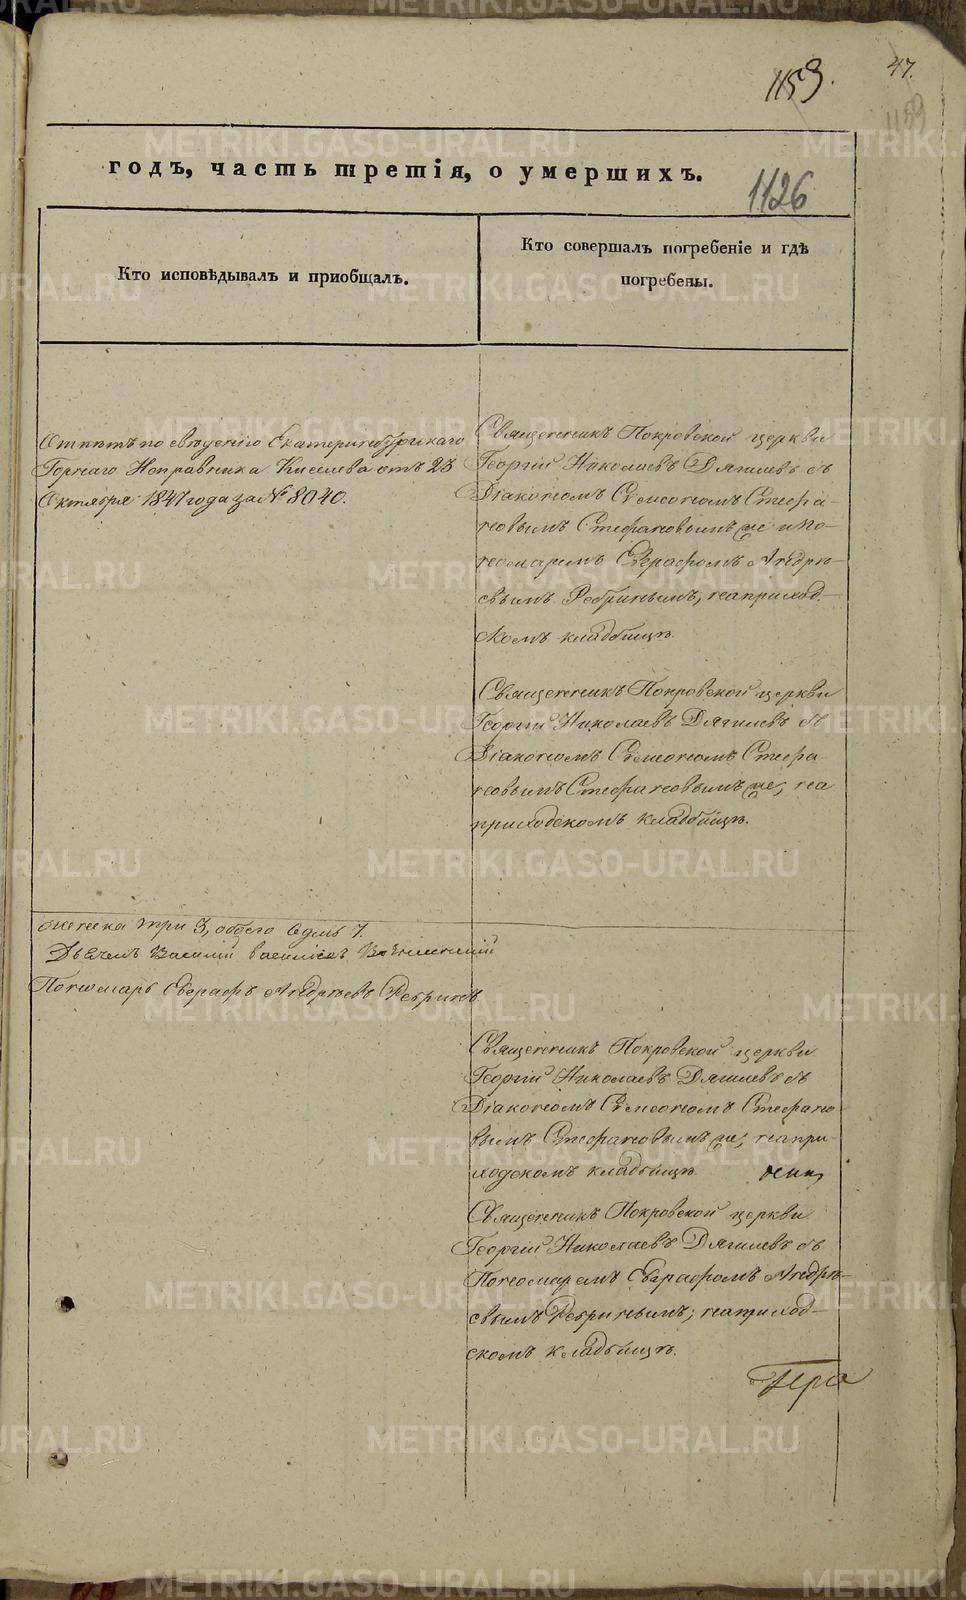 1159.
47.
1159
годъ, часть третія, о умершихъ.
1126
Кто исповѣдывалъ и пріобщалъ.
Кто совершалъ погребеніе и гдѣ
погребены.
Отпѣтъ по сведенію Екатеринбургскаго
Горнаго Исправника Киселева отъ 23
Октября 1847 года за № 8040.
Священникъ Покровской церкви
Георгій Николаевъ Дягилевъ съ
Діакономъ Сѵмеономъ Стефа-
новымъ Стефановымъ же и по-
номаремъ Серафомъ Андрѣ-
евымъ Ребринымъ, на приход-
скомъ кладбищѣ.
Священникъ Покровской церкви
Георгій Николаевъ Дягилевъ съ
Діакономъ Сѵмеономъ Стефа-
новымъ Стефановымъ же, на
приходскомъ кладбищѣ.
женска три 3, обоего седмь 7.
Дьячекъ Василий Васильевъ
Пономарь Андреевъ Ребринъ
Священникъ Покровской церкви
Георгій Николаевъ Дягилевъ съ
Діакономъ Сѵмеономъ Стефано-
вымъ Стефановымъ же, на при-
ходскомъ кладбищѣ.
Священникъ Покровской церкви
Георгій Николаевъ Дягилевъ съ
Пономаремъ Андрѣ-
евымъ Ребринымъ, на приход-
скомъ кладбищѣ.
METRIKI.GASO-URAL.RU